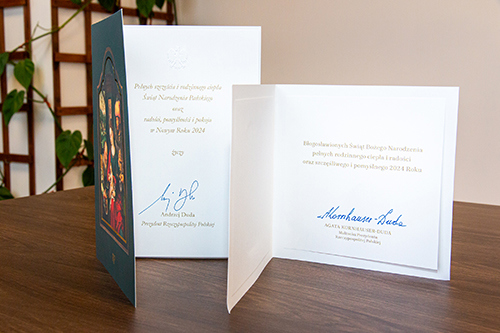 Pełnych szczęścia i rodzinnego ciepła
Świąt Narodzenia Pańskiego
oraz
radości, pomyślności i pokoju
w Nowym Roku 2024
życzy
Andrzej Duda
Prezydent Rzeczypospolitej Polskiej
Błogosławionych Świąt Bożego Narodzenia
pełnych rodzinnego ciepła i radości
oraz szczęśliwego i pomyślnego 2024 Roku
Kornhauser-Duda
AGATA KORNHAUSER-DUDA
Małżonka Prezydenta
Rzeczypospolitej Polskiej